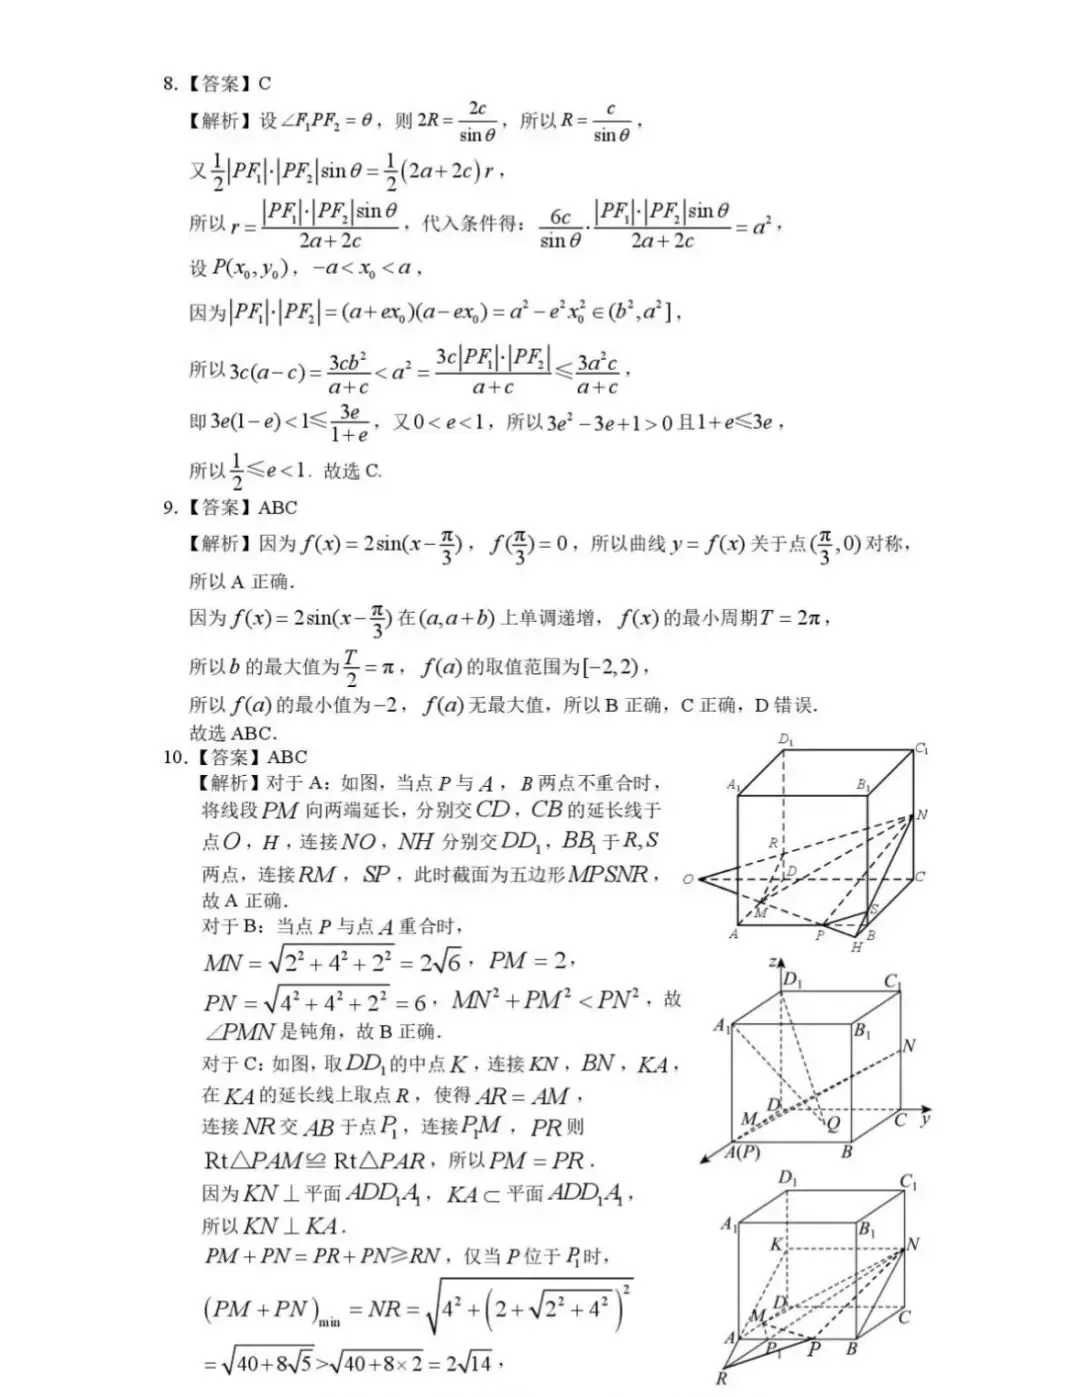 8.【答案】C
【解析】设∠F₁PF₂ = θ，则 2R = 2c/sinθ，所以 R = c/sinθ，
又 1/2|PF₁|·|PF₂|sinθ = 1/2(2a+2c)r，
所以 r = |PF₁|·|PF₂|sinθ/(2a+2c)，代入条件得：6c/sinθ · |PF₁|·|PF₂|sinθ/(2a+2c) = a²，
设 P(x₀, y₀)，-a < x₀ < a，
因为|PF₁|·|PF₂| = (a+ex₀)(a-ex₀) = a² - e²x₀² ∈ (b², a²]，
所以 3c(a-c) = 3cb²/(a+c) < a² = 3c|PF₁|·|PF₂|/(a+c) ≤ 3a²c/(a+c)，
即 3e(1-e) < 1 ≤ 3e/(1+e)，又 0 < e < 1，所以 3e² - 3e + 1 > 0 且 1+e ≤ 3e，
所以 1/2 ≤ e < 1. 故选 C.
9.【答案】ABC
【解析】因为 f(x) = 2sin(x - π/3)，f(π/3) = 0，所以曲线 y = f(x) 关于点 (π/3, 0) 对称，
所以 A 正确.
因为 f(x) = 2sin(x - π/3) 在 (a, a+b) 上单调递增，f(x) 的最小周期 T = 2π，
所以 b 的最大值为 T/2 = π，f(a) 的取值范围为 [-2, 2)，
所以 f(a) 的最小值为 -2，f(a) 无最大值，所以 B 正确，C 正确，D 错误.
故选 ABC.
10.【答案】ABC
【解析】对于 A：如图，当点 P 与 A，B 两点不重合时，
将线段 PM 向两端延长，分别交 CD，CB 的延长线于
点 O，H，连接 NO，NH 分别交 DD₁，BB₁ 于 R, S
两点，连接 RM，SP，此时截面为五边形 MPSNR，
故 A 正确.
对于 B：当点 P 与点 A 重合时，
MN = √(2²+4²+2²) = 2√6，PM = 2，
PN = √(4²+4²+2²) = 6，MN² + PM² < PN²，故
∠PMN 是钝角，故 B 正确.
对于 C：如图，取 DD₁ 的中点 K，连接 KN，BN，KA，
在 KA 的延长线上取点 R，使得 AR = AM，
连接 NR 交 AB 于点 P₁，连接 P₁M，PR 则
Rt△PAM≌Rt△PAR，所以 PM = PR.
因为 KN ⊥ 平面 ADD₁A₁，KA ⊂ 平面 ADD₁A₁，
所以 KN ⊥ KA.
PM + PN = PR + PN ≥ RN，仅当 P 位于 P₁ 时，
(PM + PN)min = NR = √(4² + (2 + √(2²+4²))²)
= √(40+8√5) > √(40+8×2) = 2√14，
D₁
C₁
A₁
B₁
N
R
O
D
C
M
S
A
P
B
H
z
D₁
C₁
A₁
B₁
N
D
M
Q
C
y
A(P)
B
D₁
C₁
A₁
B₁
K
N
D
M
C
A
P₁
P
B
R